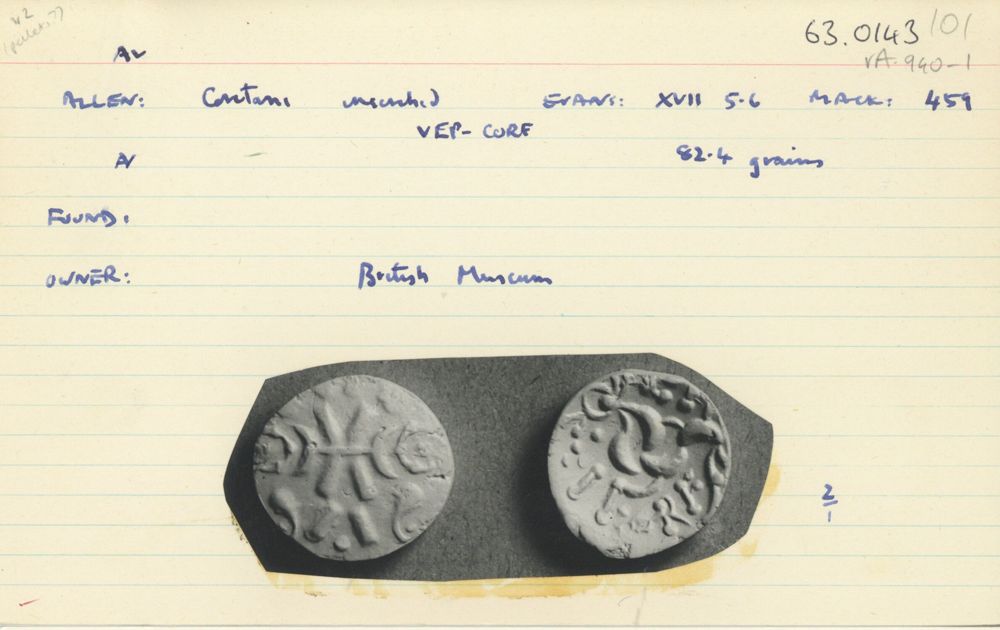 63.0143 101
AV
VA. 940-1
ALLEN: Coritani inscribed EVANS: XVII 5-6 MACK: 459
VEP-CORF
AV 82.4 grains
FOUND:
OWNER: British Museum
2/1